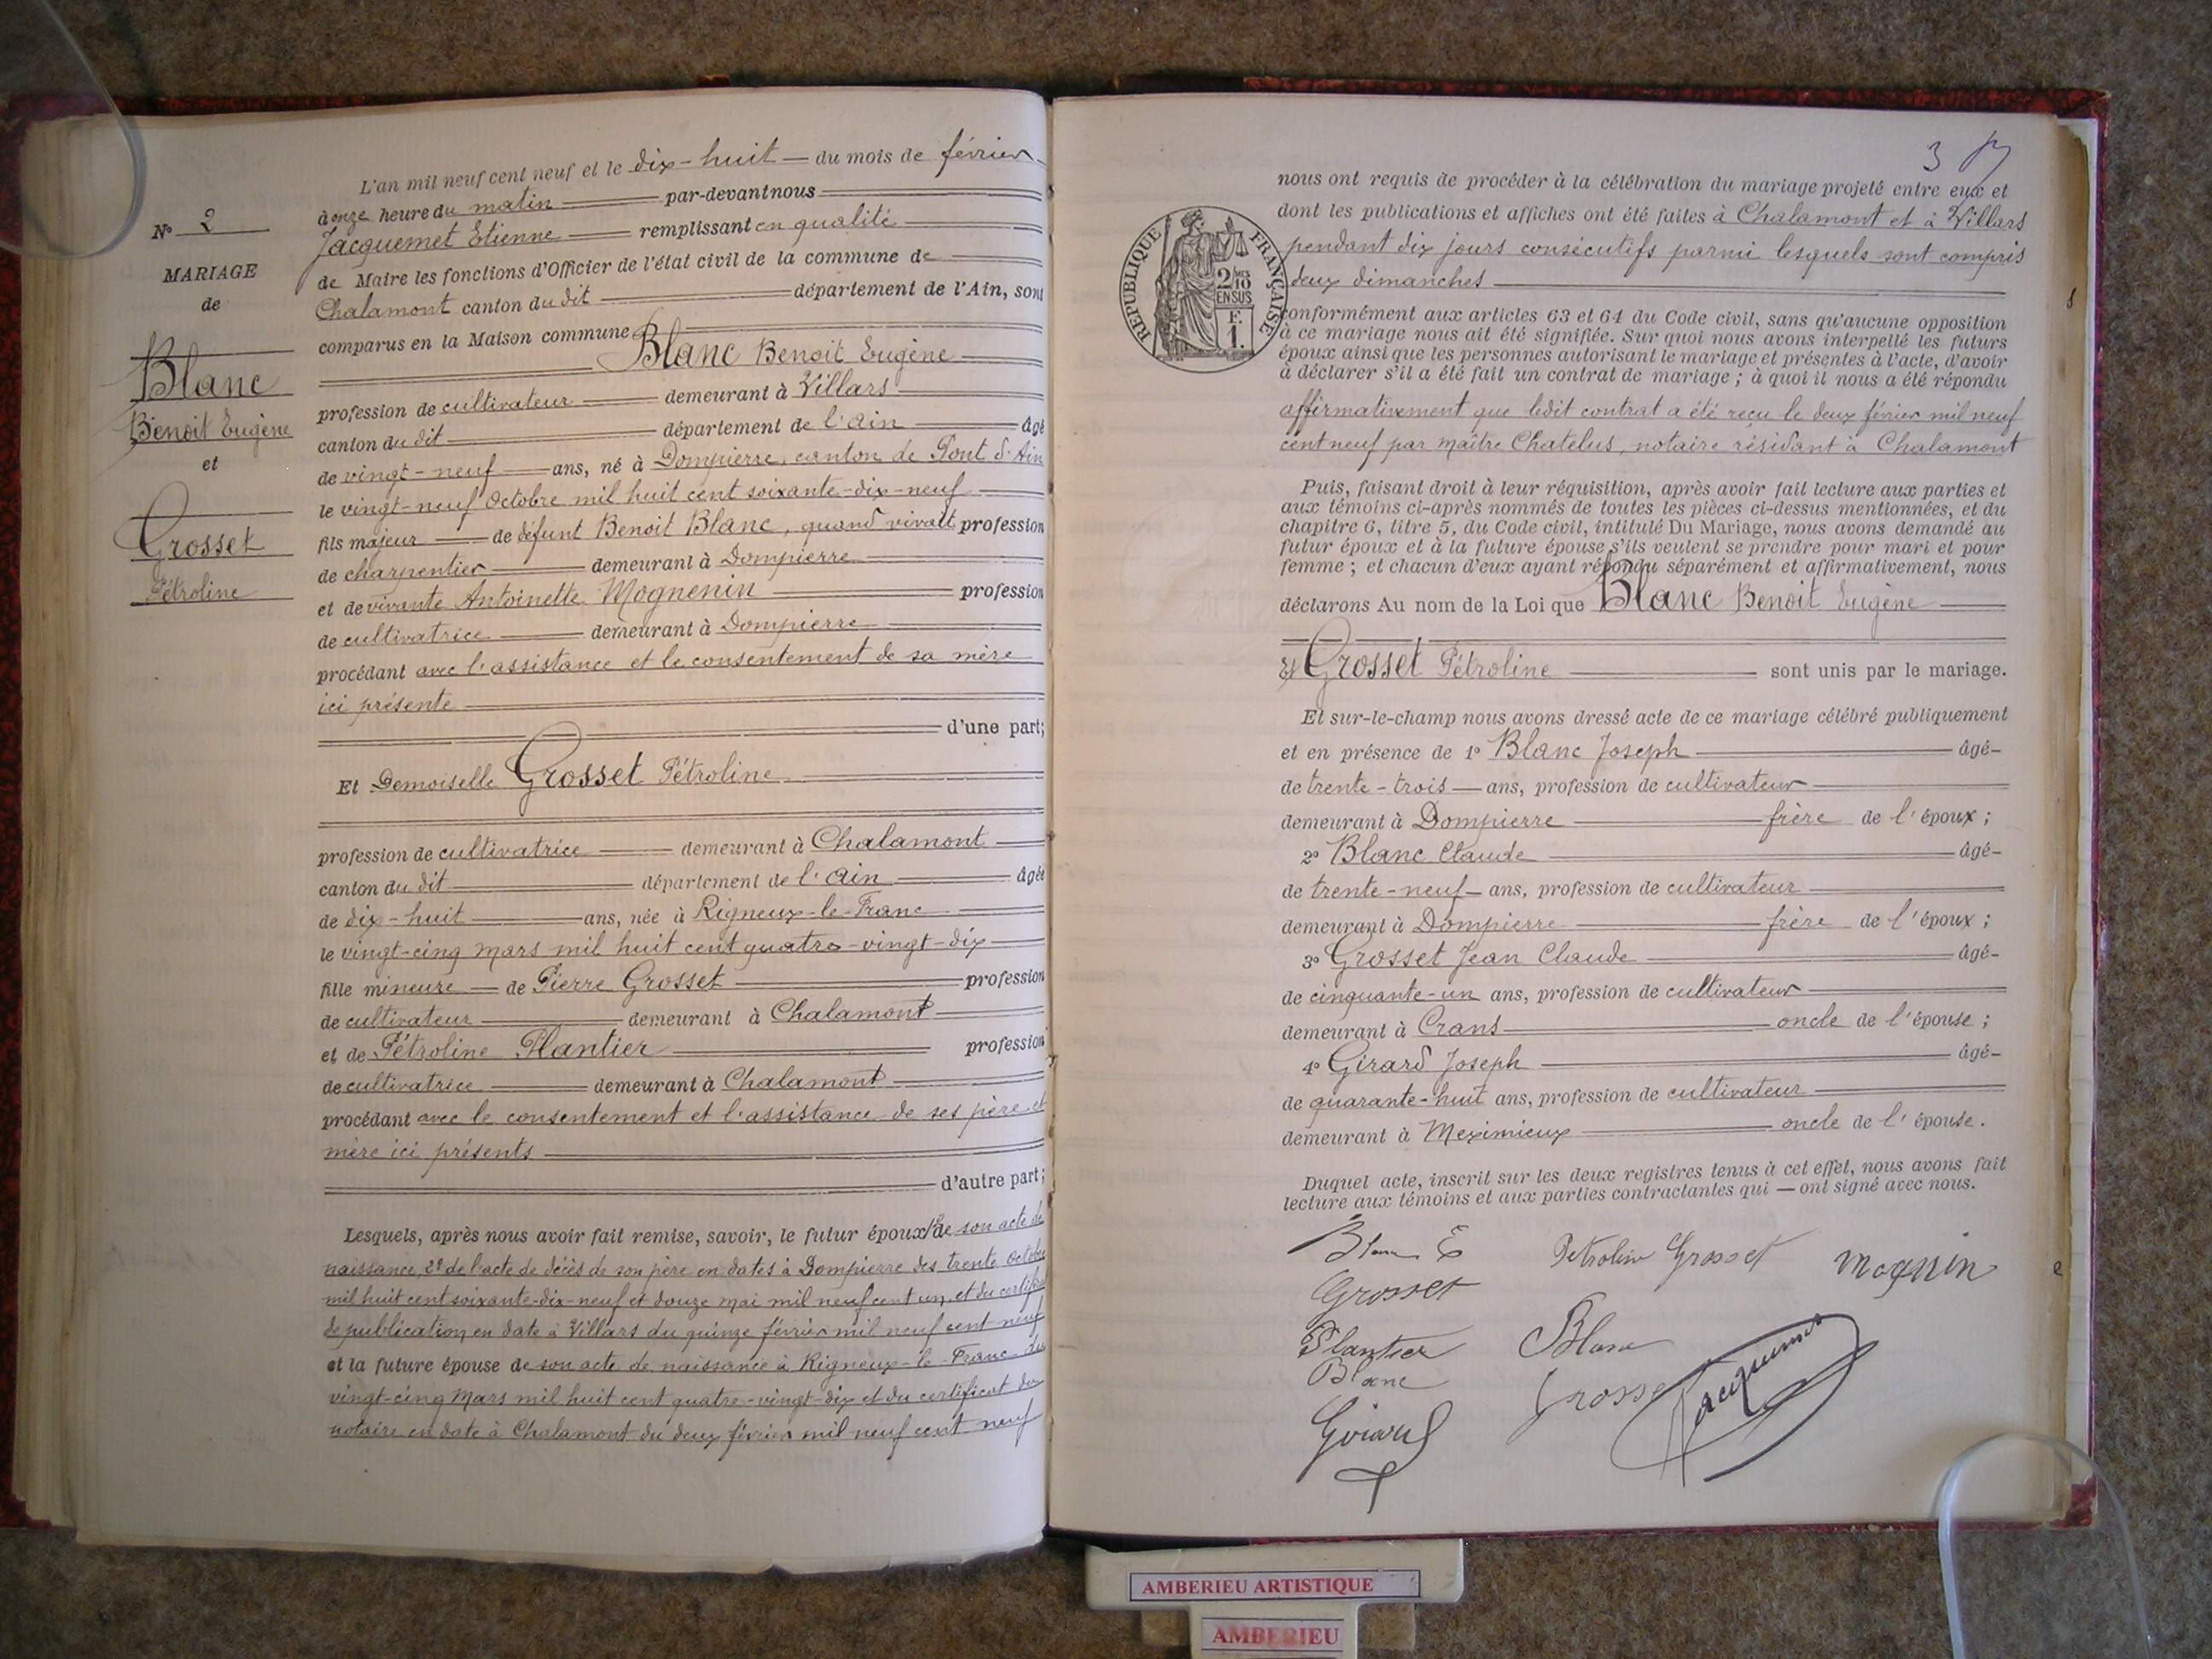 L'an mil neuf cent neuf et le dix-huit du mois de février
à onze heure du matin par-devant nous
Jacquemet Etienne remplissant en qualité
de Maire les fonctions d'Officier de l'état civil de la commune de
Chalamont canton du dit département de l'Ain, sont
comparus en la Maison commune Blanc Benoit Eugène
profession de cultivateur demeurant à Villars
canton du dit département de l'Ain âgé
de vingt-neuf ans, né à Dompierre, canton de Pont d'Ain
le vingt-neuf Octobre mil huit cent soixante-dix-neuf
fils majeur de défunt Benoit Blanc, quand vivait profession
de charpentier demeurant à Dompierre
et de vivante Antoinette Mognenin profession
de cultivatrice demeurant à Dompierre
procédant avec l'assistance et le consentement de sa mère
ici présente
d'une part;
Et Demoiselle Grosset Pétroline
profession de cultivatrice demeurant à Chalamont
canton du dit département de l'Ain âgée
de dix-huit ans, née à Rigneux-le-Franc
le vingt-cinq Mars mil huit cent quatre-vingt-dix
fille mineure de Pierre Grosset profession
de cultivateur demeurant à Chalamont
et de Pétroline Plantier profession
de cultivatrice demeurant à Chalamont
procédant avec le consentement et l'assistance de ses père et
mère ici présents
d'autre part;
Lesquels, après nous avoir fait remise, savoir, le futur époux 1º de son acte de
naissance, 2º de l'acte de décès de son père en dates à Dompierre des trente Octobre
mil huit cent soixante-dix-neuf et douze mai mil neuf cent un, et du certificat
de publication en date à Villars du quinze février mil neuf cent neuf
et la future épouse de son acte de naissance à Rigneux-le-Franc du
vingt-cinq Mars mil huit cent quatre-vingt-dix et du certificat du
notaire en date à Chalamont du deux février mil neuf cent neuf
Nº 2
MARIAGE
de
Blanc
Benoit Eugène
et
Grosset
Pétroline
3
nous ont requis de procéder à la célébration du mariage projeté entre eux et
dont les publications et affiches ont été faites à Chalamont et à Villars
pendant dix jours consécutifs parmi lesquels sont compris
deux dimanches
RÉPUBLIQUE FRANÇAISE
2/10 MES
EN SUS
F.
1.
conformément aux articles 63 et 64 du Code civil, sans qu'aucune opposition
à ce mariage nous ait été signifiée. Sur quoi nous avons interpellé les futurs
époux ainsi que les personnes autorisant le mariage et présentes à l'acte, d'avoir
à déclarer s'il a été fait un contrat de mariage; à quoi il nous a été répondu
affirmativement que ledit contrat a été reçu le deux février mil neuf
cent neuf par maître Chatelus, notaire résidant à Chalamont
Puis, faisant droit à leur réquisition, après avoir fait lecture aux parties et
aux témoins ci-après nommés de toutes les pièces ci-dessus mentionnées, et du
chapitre 6, titre 5, du Code civil, intitulé Du Mariage, nous avons demandé au
futur époux et à la future épouse s'ils veulent se prendre pour mari et pour
femme; et chacun d'eux ayant répondu séparément et affirmativement, nous
déclarons Au nom de la Loi que Blanc Benoit Eugène
et Grosset Pétroline sont unis par le mariage.
Et sur-le-champ nous avons dressé acte de ce mariage célébré publiquement
et en présence de 1º Blanc Joseph âgé
de trente-trois ans, profession de cultivateur
demeurant à Dompierre frère de l'époux;
2º Blanc Claude âgé
de trente-neuf ans, profession de cultivateur
demeurant à Dompierre frère de l'époux;
3º Grosset Jean Claude âgé
de cinquante-un ans, profession de cultivateur
demeurant à Crans oncle de l'épouse;
4º Girard Joseph âgé
de quarante-huit ans, profession de cultivateur
demeurant à Meximieux oncle de l'épouse.
Duquel acte, inscrit sur les deux registres tenus à cet effet, nous avons fait
lecture aux témoins et aux parties contractantes qui ont signé avec nous.
Blanc E Petroline Grosset Mognin
Grosset
Plantier Blanc
Blanc
Grosset Jacquemet
Girard
AMBERIEU ARTISTIQUE
AMBERIEU